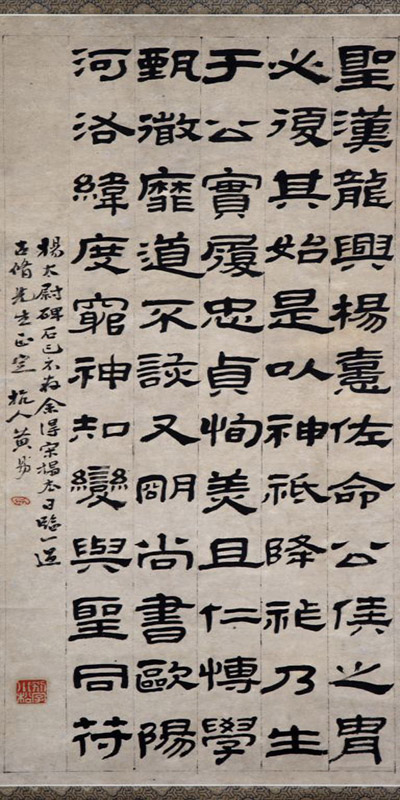 聖漢龍興楊憙佐命公侯之胄
必復其始是以神祇降祉乃生
于公實履忠貞恂美且仁博學
甄微靡道不該又明尚書歐陽
河洛緯度窮神知變與聖同符
楊太尉碑石已不存余得宋搨本日臨一過
古脩先生正定 杭人黃易